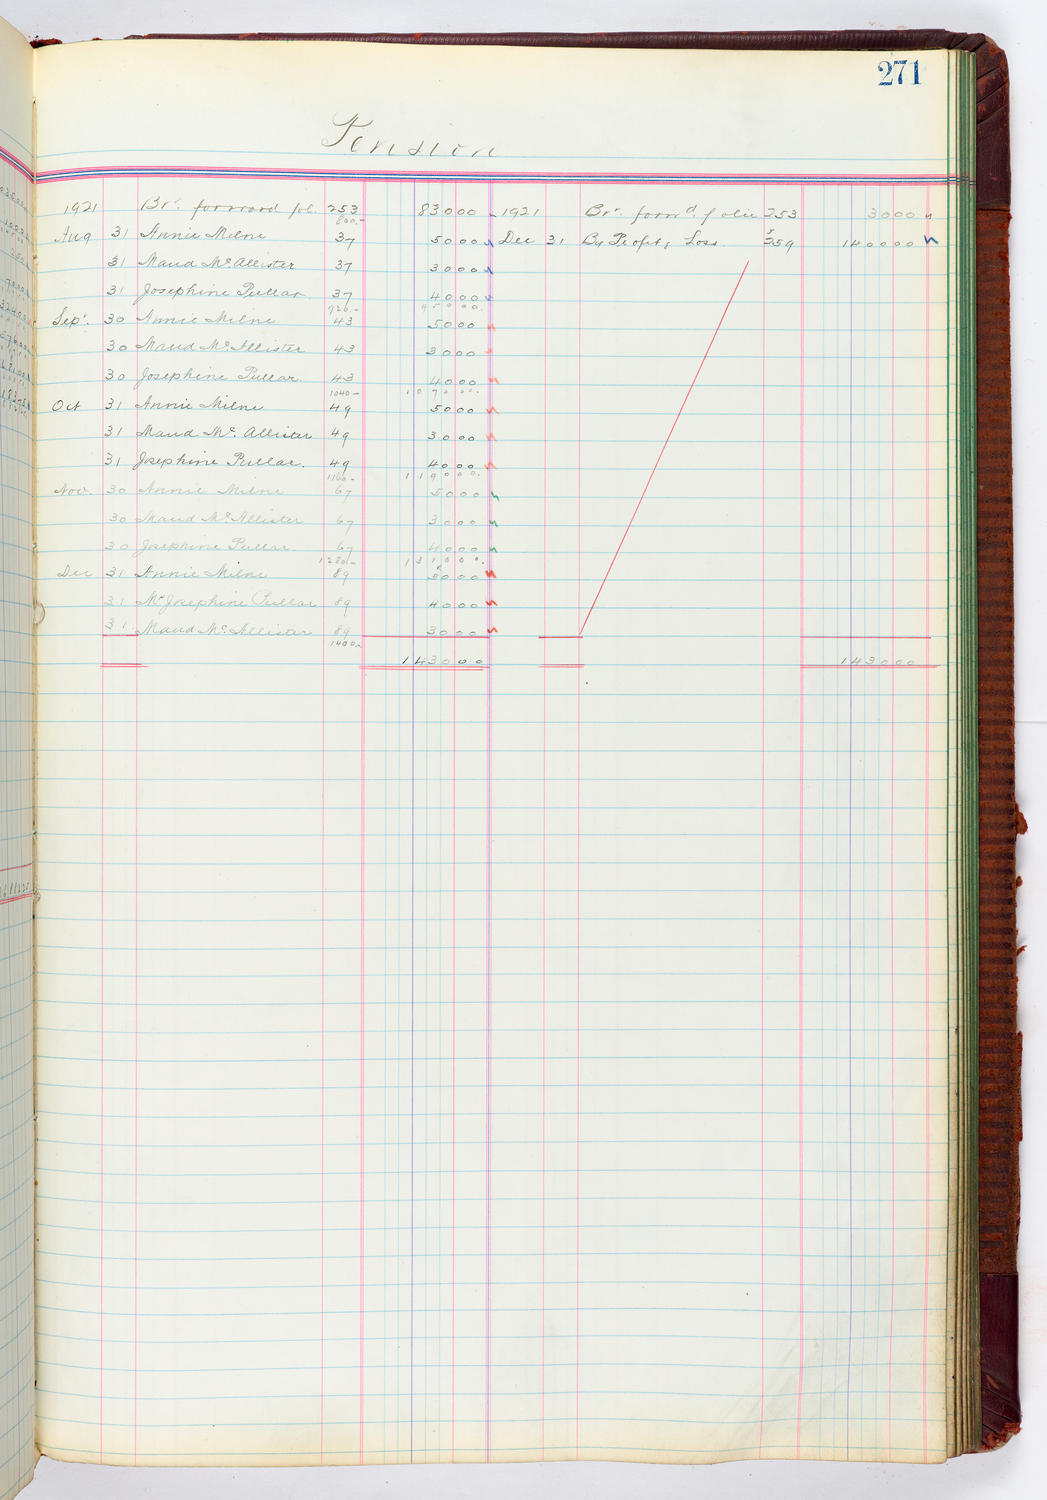 271
Pension
1921 Brt. forward fol. 253 83000 1921 Brt. forwd. folio 253 3000
800.-
Aug 31 Annie Milne 37 5000 Dec 31 By Profit & Loss 359 140000
31 Maud McAllister 37 3000
31 Josephine Pullar 37 4000
920.- 95000.
Sept. 30 Annie Milne 43 5000
30 Maud McAllister 43 3000
30 Josephine Pullar 43 4000
1040- 107000.
Oct 31 Annie Milne 49 5000
31 Maud Mc. Allister 49 3000
31 Josephine Pullar. 49 4000
1160- 119000.
Nov. 30 Annie Milne 67 5000
30 Maud McAllister 67 3000
30 Josephine Pullar 67 4000
1280.- 131000.
Dec 31 Annie Milne 89 5000
31 Josephine Pullar 89 4000
31. Maud McAllister 89 3000
1400.-
143000 143000